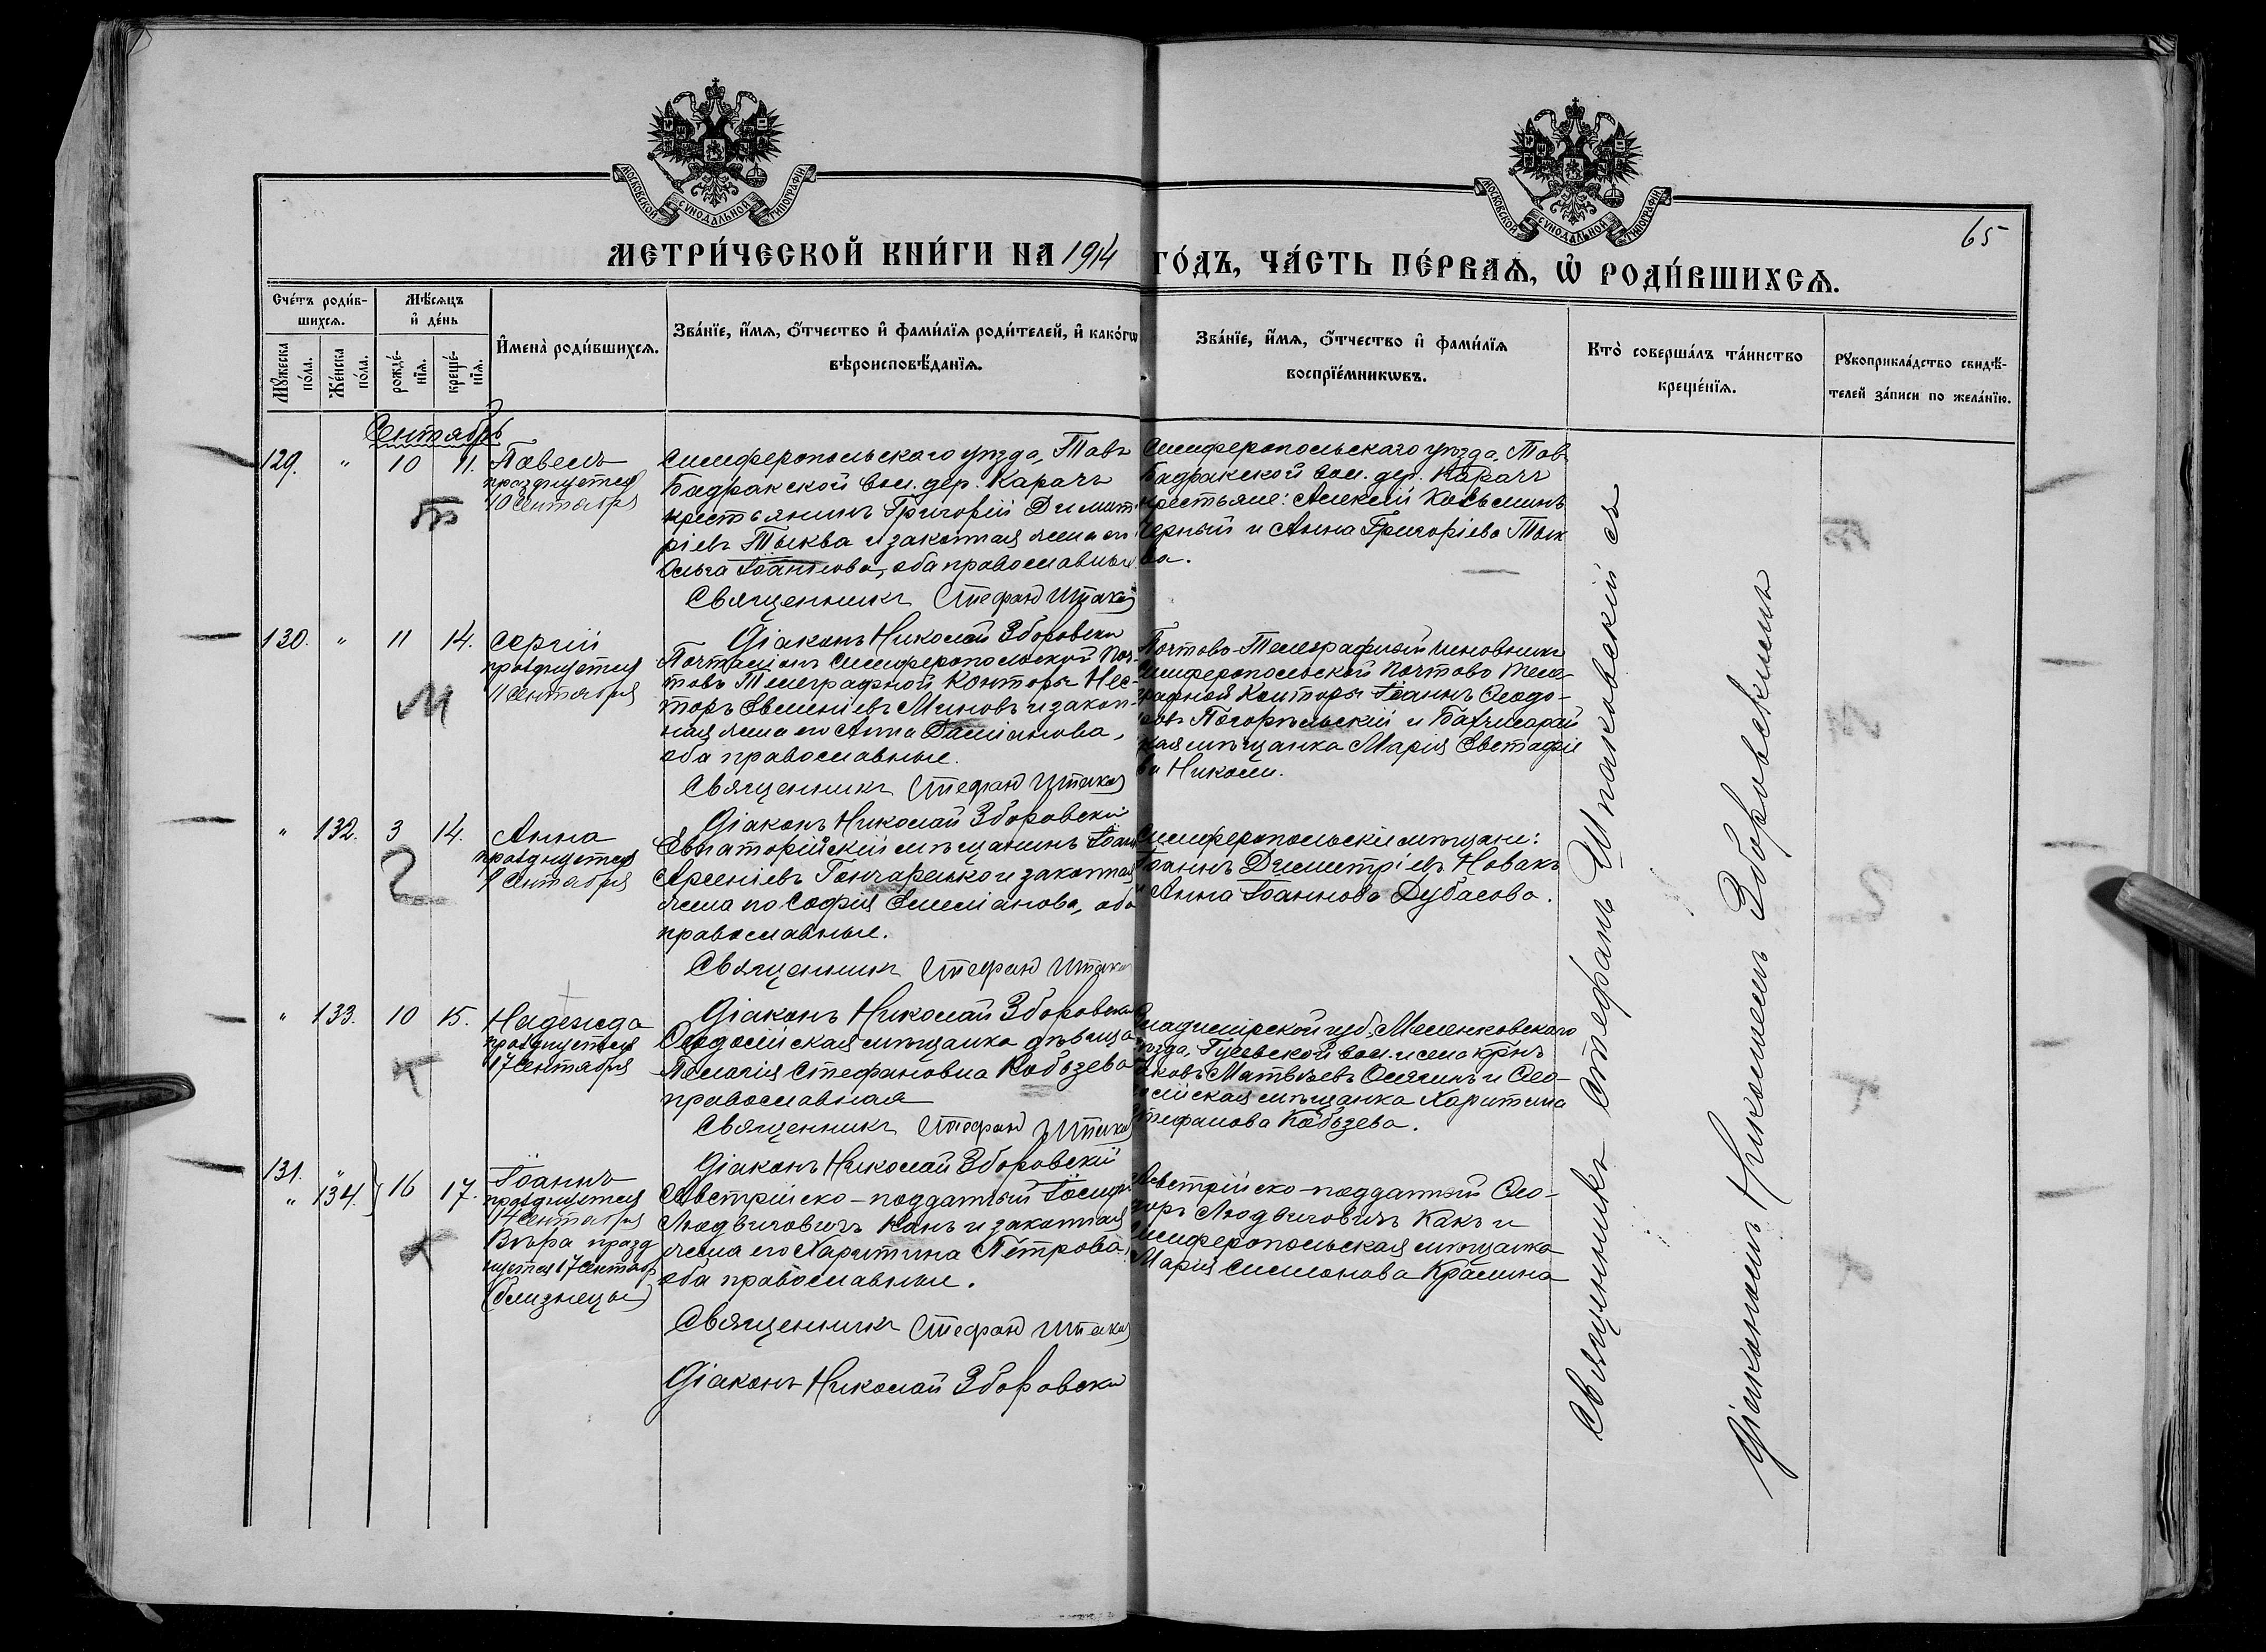 МОСКОВСКОЙ СѴНОДАЛЬНОЙ ТИПОГРАФІИ
МОСКОВСКОЙ СѴНОДАЛЬНОЙ ТИПОГРАФІИ
65
МЕТРИ́ЧЕСКОЙ КНИ́ГИ НА 1914 ГО́ДЪ, ЧА́СТЬ ПЕ́РВАѦ, Ѡ҆ РОДИ́ВШИХСѦ.
Сче́тъ роди́в-
шихсѧ.
Мѣ́сѧцъ
и҆ де́нь
И҆мена̀ роди́вшихсѧ.
Зва́нїе, и҆́мѧ, ѻ҆́тчество и҆ фами́лїѧ роди́телей, и҆ како́гѡ
вѣроисповѣ́данїѧ.
Зва́нїе, и҆́мѧ, ѻ҆́тчество и҆ фами́лїѧ
воспрїе́мникѡвъ.
Кто̀ соверша́лъ та́инство
креще́нїѧ.
Рꙋкоприкла́дство свидѣ́-
телей за́писи по жела́нїю.
Мꙋ́жеска
по́ла.
Же́нска
по́ла.
рожде́-
нїѧ.
креще́-
нїѧ.
Сентябрь
129. " 10 11. Павелъ
празднуется
10 Сентября
Симферопольскаго уѣзда, Тав
Бадракской вол. дер. Карачъ
крестьянинъ Григорій Димит
ріевъ Тыква и законная жена его
Ольга Іоаннова, оба православные
Священникъ Стефанъ Шпаков
Діаконъ Николай Зборовски
Симферопольскаго уѣзда, Тав
Бадракской вол. дер. Карачъ
крестьяне: Алексій Косьминъ
Черный и Анна Григоріева Тык
ва.
130. " 11 14. Сергій
празднуется
11 Сентября
М
Почталіонъ Симферопольской Поч-
тово Телеграфной Конторы Нес-
торъ Евменіевъ Миновъ и закон-
ная жена его Анна Даміанова,
оба православные.
Священникъ Стефанъ Шпаков
Діаконъ Николай Зборовскій
Почтово-Телеграфный чиновникъ
Симферопольской Почтово Теле-
графной Конторы Іоаннъ Ѳеодо-
ровъ Погорѣльскій и Бахчисарай
ская мѣщанка Марія Евстафіе
ва Николи.
" 132. 3 14. Анна
празднуется
9 Сентября
Евпаторійскій мѣщанинъ Іоан
Арсеніевъ Гончаренко и законная
жена его Софія Емеліанова, оба
православные.
Священникъ Стефанъ Шпаков
Діаконъ Николай Зборовски
Симферопольскіе мѣщане:
Іоаннъ Димитріевъ Новакъ
и Анна Іоаннова Дубасова.
" 133. 10 15. Надежда
празднуется
17 Сентября
К
Ѳеодосійская мѣщанка дѣвица
Пелагія Стефановна Кобзева
православная
Священникъ Стефанъ Шпаков
Діаконъ Николай Зборовскій
Владимірской губ. Меленковскаго
уѣзда, Гусевской вол. и села крнъ
Яковъ Матвѣевъ и Ѳео-
досійская мѣщанка Харитина
Стефанова Кобзева.
131. "
" 134. } 16 17. Іоаннъ
празднуется
14 Сентября
Вѣра празд
нуется 17 Сентябр
(близнецы)
К
Австрійско-подданный Іосифъ
Людвиговичъ Канъ и законная
жена его Харитина Петрова,
оба православные.
Священникъ Стефанъ Шпаков
Діаконъ Николай Зборовски
Австрійско-подданный Ѳео-
доръ Людвиговичъ Канъ и
Симферопольская мѣщанка
Марія Симонова Крамина
Священникъ Стефанъ Шпаковскій съ
Діакономъ Николаемъ Зборовскимъ